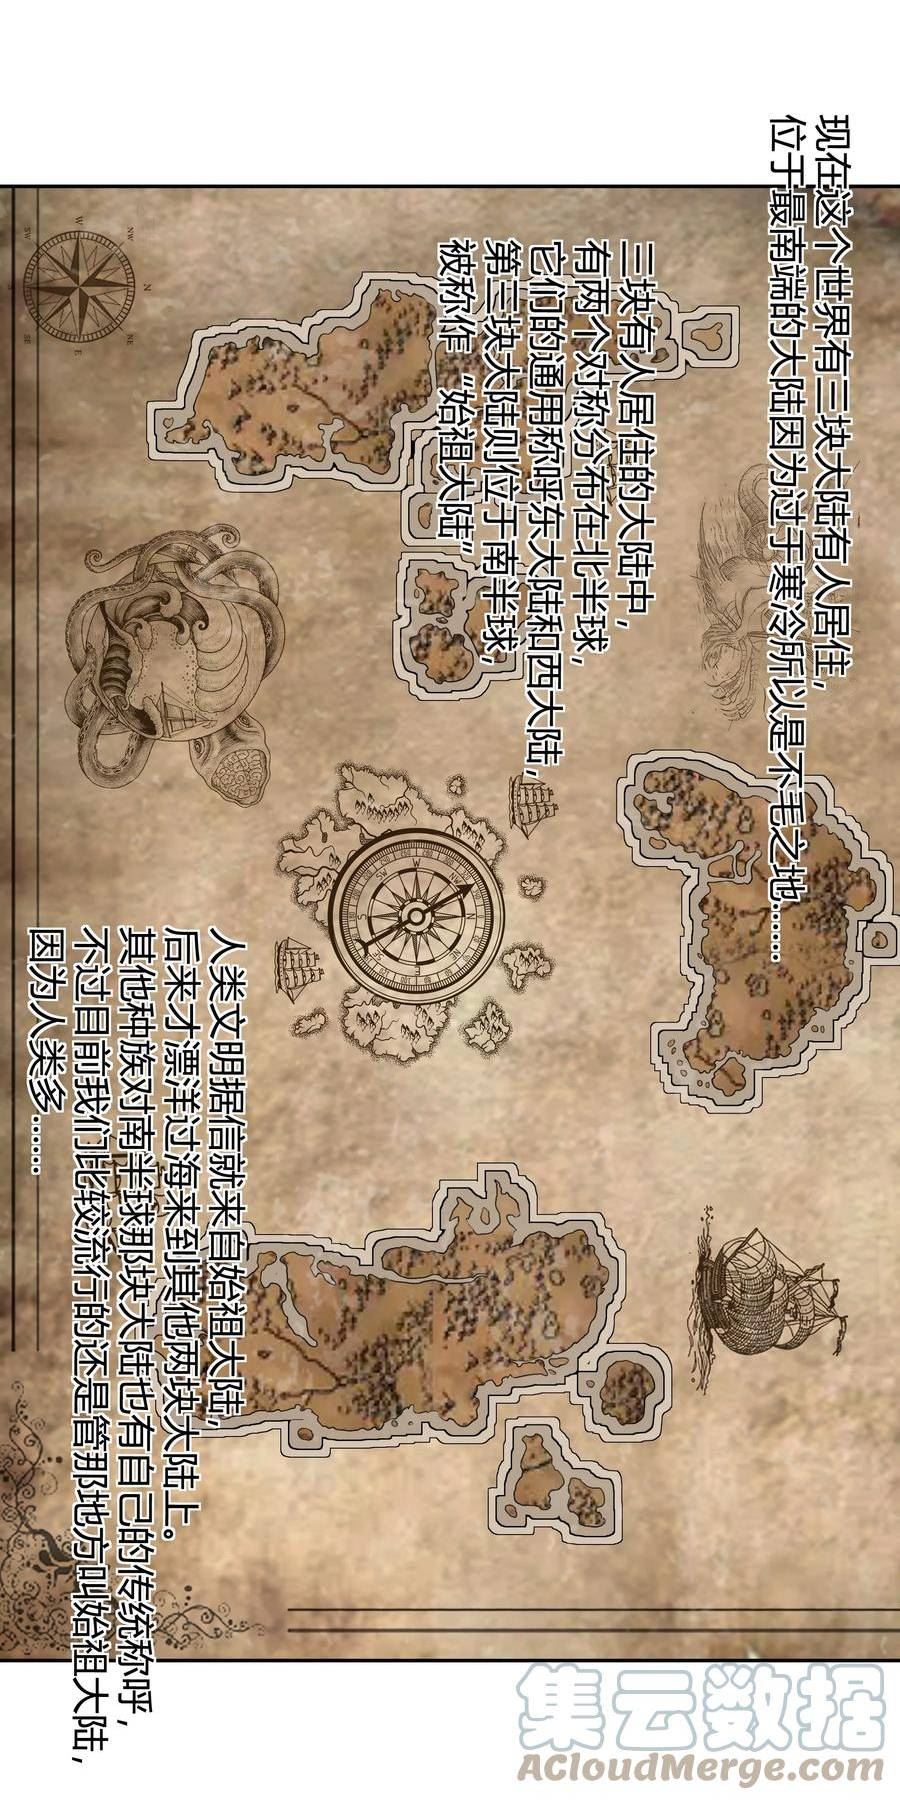 现在这个世界有三块大陆有人居住，
位于最南端的大陆因为过于寒冷所以是不毛之地……
三块有人居住的大陆中，
有两个对称分布在北半球，
它们的通用称呼东大陆和西大陆，
第三块大陆则位于南半球，
被称作“始祖大陆”
人类文明据信就来自始祖大陆，
后来才漂洋过海来到其他两块大陆上。
其他种族对南半球那块大陆也有自己的传统称呼，
不过目前我们比较流行的还是管那地方叫始祖大陆，
因为人类多……
N
NE
E
SE
SW
W
NW
N
NW
W
SW
S
集云数据
ACloudMerge.com